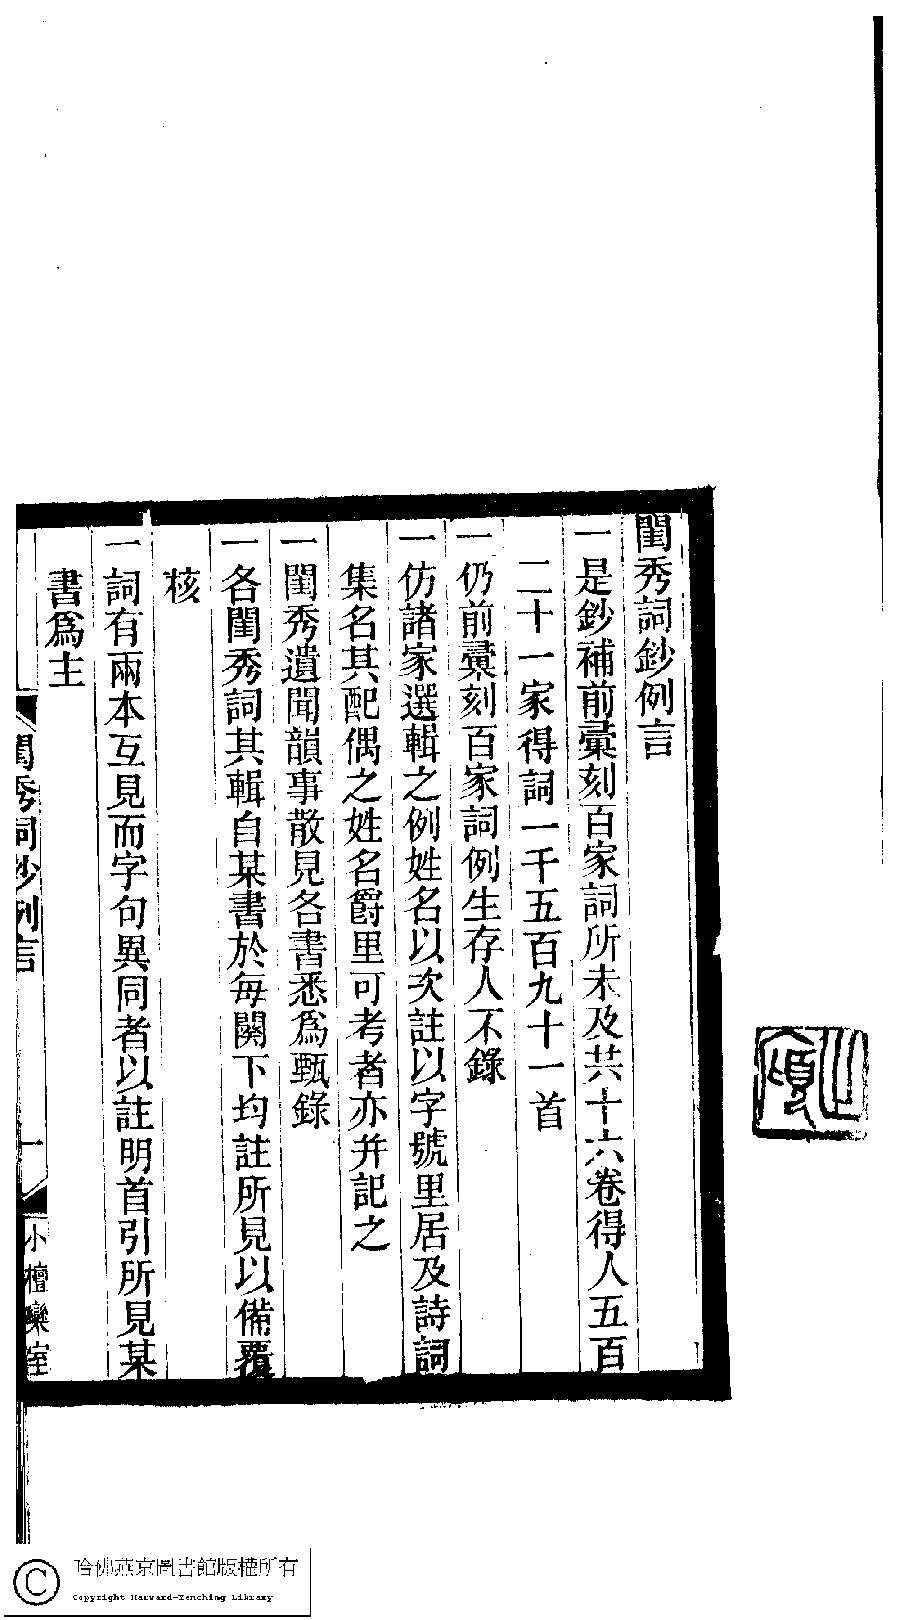 閨秀詞鈔例言
一是鈔補前彙刻百家詞所未及共十六卷得人五百
二十一家得詞一千五百九十一首
一仍前彙刻百家詞例生存人不錄
一仿諸家選輯之例姓名以次註以字號里居及詩詞
集名其配偶之姓名爵里可考者亦幷記之
一閨秀遺聞韻事散見各書悉爲甄錄
一各閨秀詞其輯自某書於每闋下均註所見以備覆
核
一詞有兩本互見而字句異同者以註明首引所見某
書爲主
閨秀詞鈔例言
一
小檀欒室
哈佛燕京圖書館版權所有
Copyright Harvard-Yenching Library